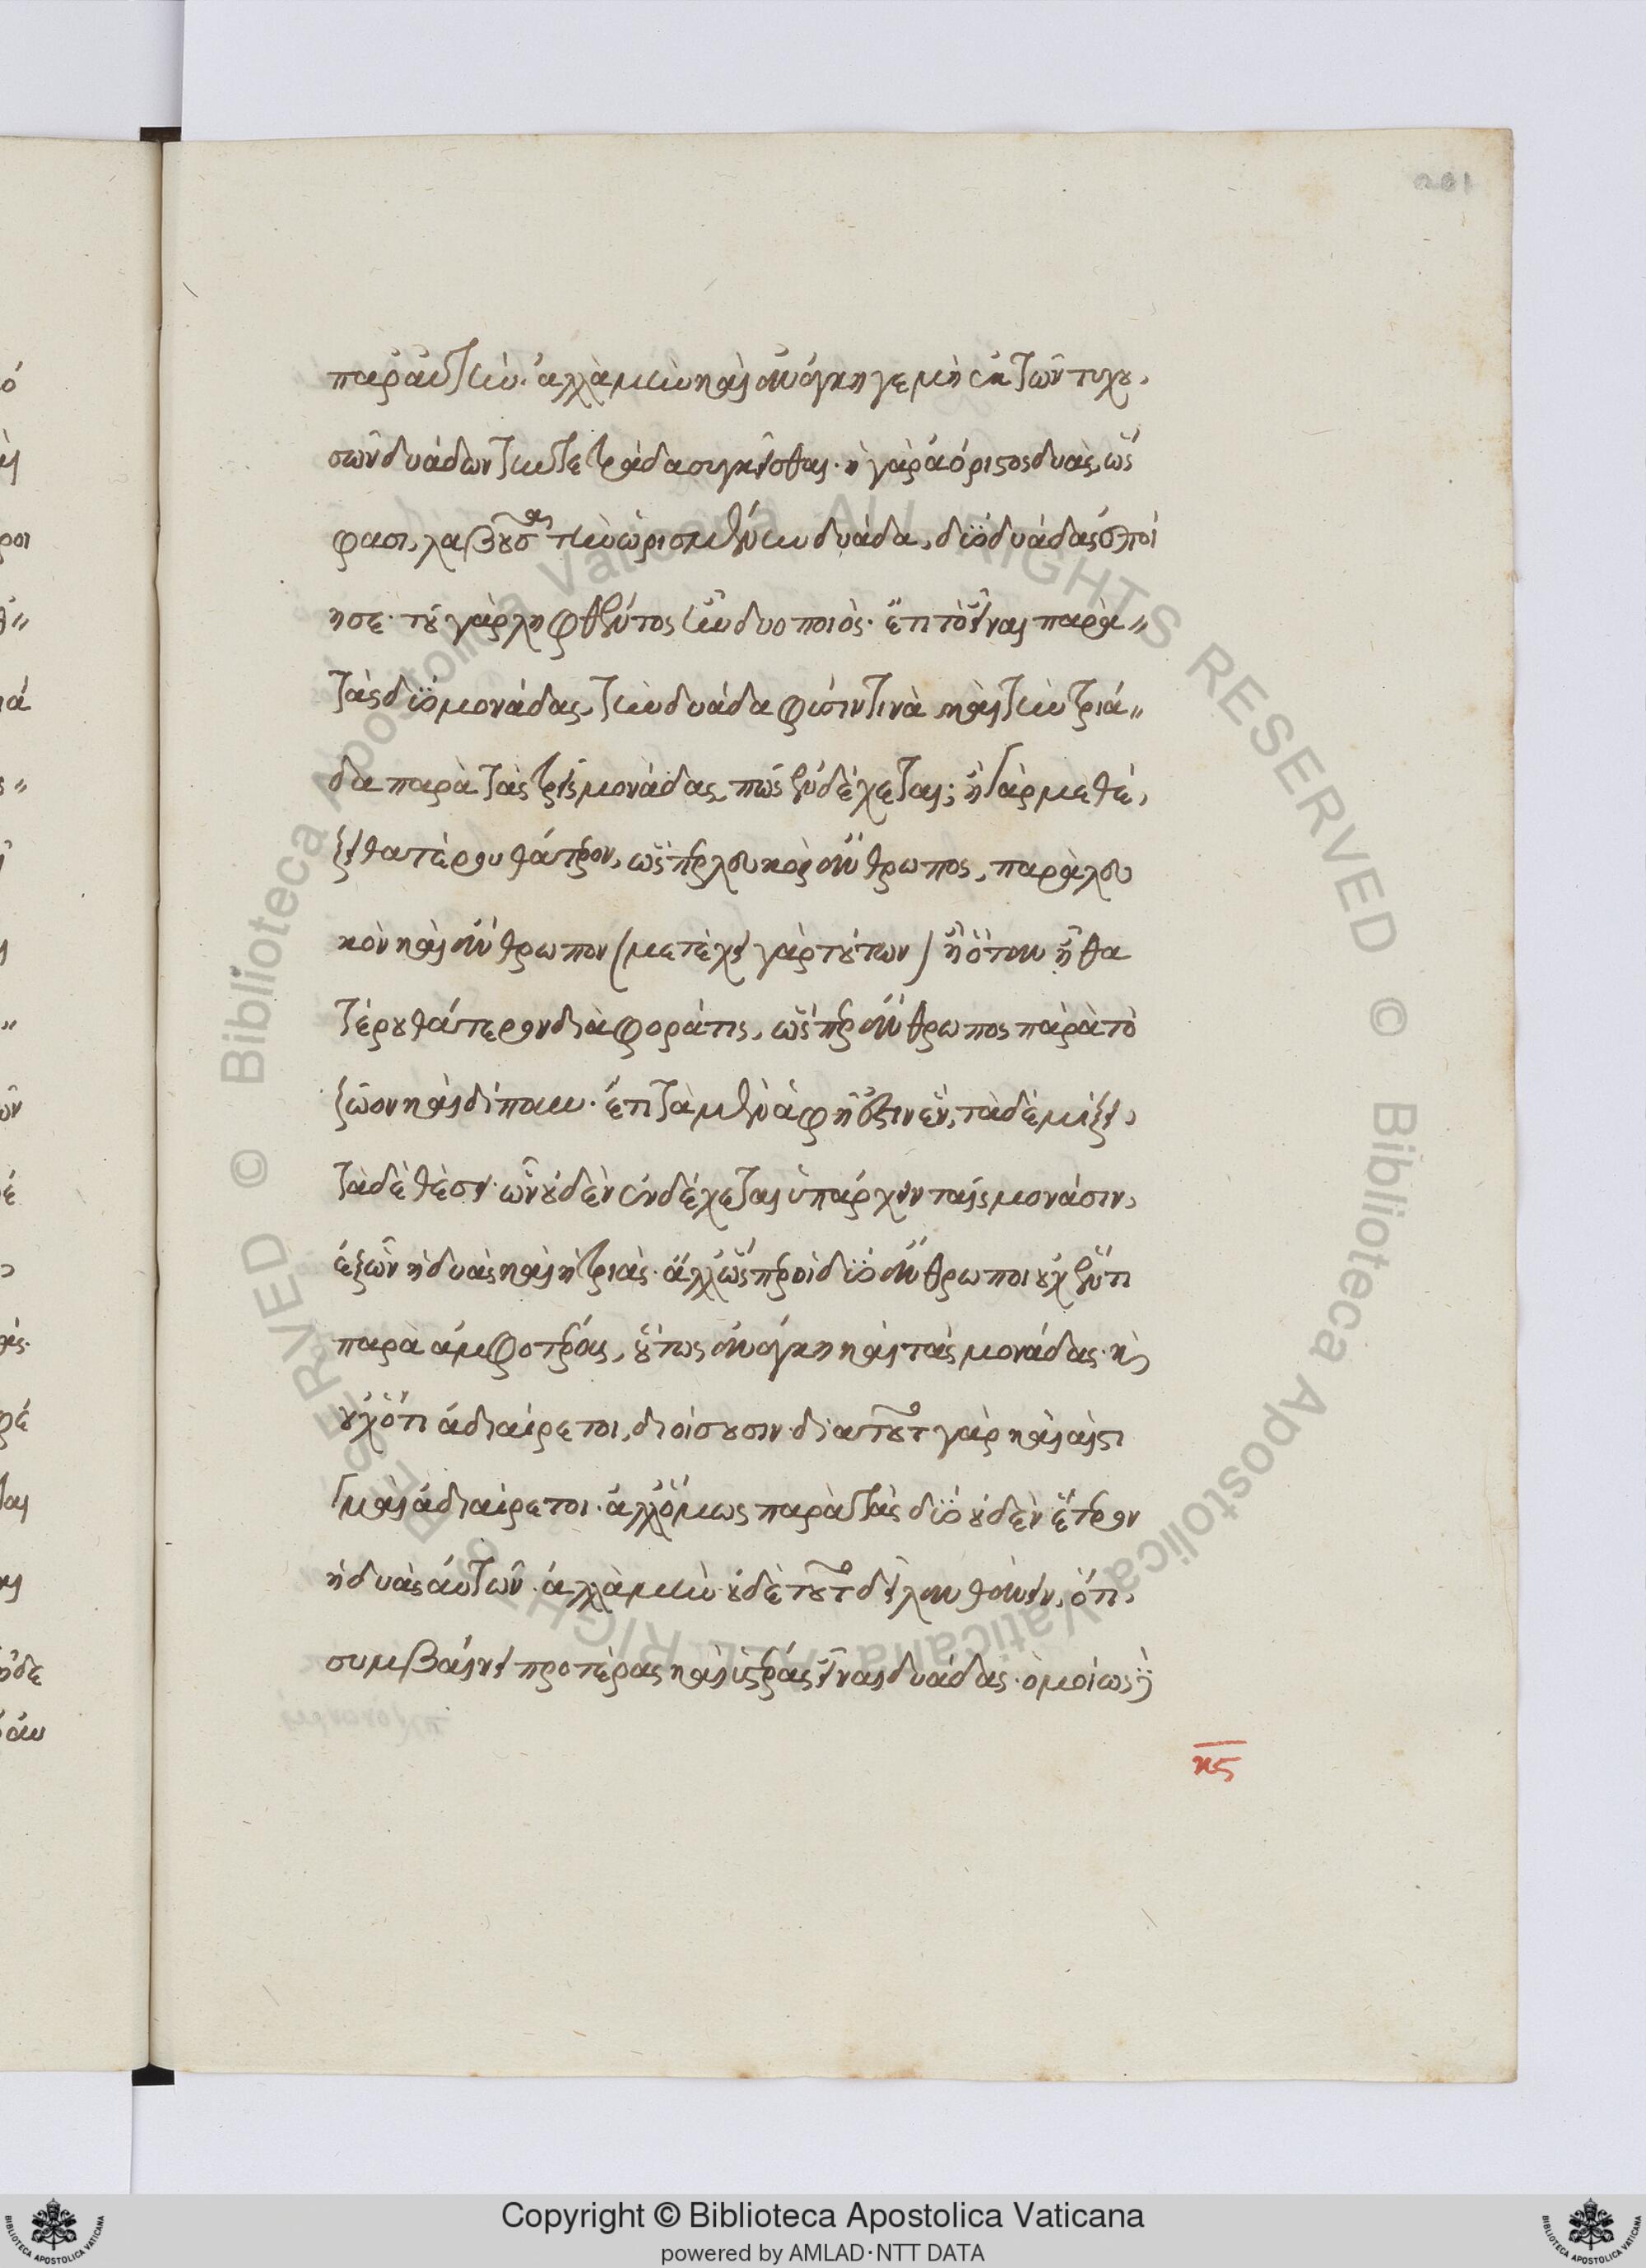 παρ' αὐτὴν. ἀλλὰ μὴν καὶ ἀνάγκη γε μὴ ἐκ τῶν τυχου,
σῶν δυάδων τὴν τετράδα συγκεῖσθαι· ἡ γὰρ ἀόριστος δυὰς, ὥς
φασι, λαβοῦσα τὴν ὡρισμένην δυάδα, δύο δυάδας ἐποί
ησε· τοῦ γὰρ ληφθέντος ἦν δυοποιός· ἔτι τὸ εἶναι παρὰ〃
τὰς δύο μονάδας, τὴν δυάδα φύσιν τινὰ καὶ τὴν τριά〃
δα παρὰ τὰς τρεῖς μονάδας, πῶς ἐνδέχεται; ἢ γὰρ μεθέ,
ξει θατέρου θάτερον, ὥσπερ λευκὸς ἄνθρωπος, παρὰ λευ
κὸν καὶ ἄνθρωπον (μετέχει γὰρ τούτων) ἢ ὅταν ᾖ θα
τέρου θάτερον διαφορά τις, ὥσπερ ἄνθρωπος παρὰ τὸ
ζῶον καὶ δίπουν. ἔτι τὰ μὲν ἁφῇ ἐστιν ἕν, τὰ δὲ μίξει,
τὰ δὲ θέσει· ὧν οὐδὲν ἐνδέχεται ὑπάρχειν ταῖς μονάσιν,
ἐξ ὧν ἡ δυὰς καὶ ἡ τριάς. ἀλλ' ὥσπερ οἱ δύο ἄνθρωποι οὐχ ἕν τι
παρὰ ἀμφοτέρους, οὕτως ἀνάγκη καὶ τὰς μονάδας. καὶ
οὐχ ὅτι ἀδιαίρετοι, διοίσουσιν. διὰ τοῦτο γὰρ καὶ αἱ στι
γμαὶ ἀδιαίρετοι. ἀλλ' ὅμως παρὰ τὰς δύο οὐδὲν ἕτερον
ἡ δυὰς αὐτῶν. ἀλλὰ μὴν οὐδὲ τοῦτο δεῖ λανθάνειν, ὅτι,
συμβαίνει προτέρας καὶ ὑστέρας εἶναι δυάδας. ὁμοίως δὲ
κς